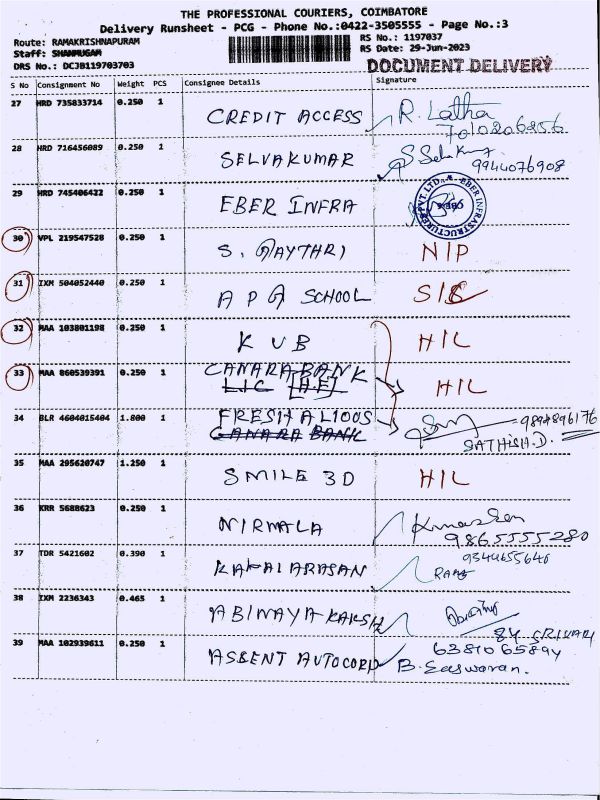 THE PROFESSIONAL COURIERS, COIMBATORE
Delivery Runsheet - PCG - Phone No.:0422-3505555 - Page No.:3
Route: RAMAKRISHNAPURAM RS No.: 1197037
Staff: SHANMUGAM RS Date: 29-Jun-2023
DRS No.: DCJB119703703 DOCUMENT DELIVERY
S No Consignment No Weight PCS Consignee Details Signature
27 HRD 735833714 0.250 1 CREDIT ACCESS R. Latha
7010206256
28 HRD 716456089 0.250 1 SELVAKUMAR
9944076908
29 HRD 745406422 0.250 1 EBER INFRA
30 VPL 219547528 0.250 1 S. GAYTHRI NIP
31 IXM 504052440 0.250 1 A P A SCHOOL
32 MAA 103801198 0.250 1 K U B HIL
33 MAA 860539391 0.250 1 CANARA BANK HIL
LIC
34 BLR 4604015404 1.800 1 FRESH ALIOUS 9894896176
CANARA BANK SATHISH.D.
35 MAA 295620747 1.250 1 SMILE 3D HIL
36 KRR 5688623 0.250 1 NIRMALA
9865555280
37 TDR 5421602 0.390 1 KAKAIARASAN 9344655640
38 IXM 2236343 0.465 1 ABINAYA
39 MAA 102939611 0.250 1 ASBENT AUTOCORP 6381065894
B. Easwaran.